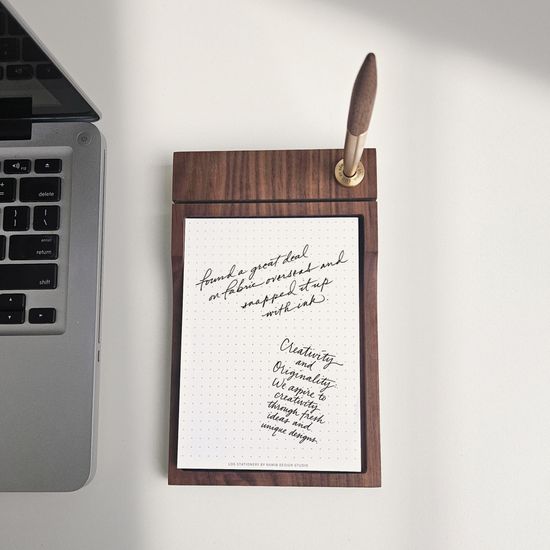 found a great deal
on fabric overseas and
snapped it up
with ink.
Creativity
and
Originality:
We aspire to
creativity
through fresh
ideas and
unique designs.
LOG STATIONERY BY HAMIN DESIGN STUDIO
delete
enter
return
shift